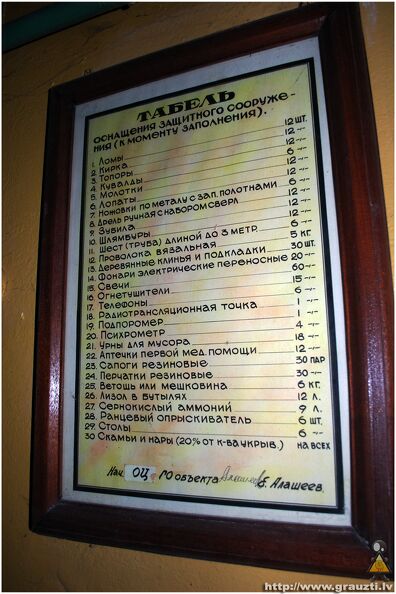 ТАБЕЛЬ
ОСНАЩЕНИЯ ЗАЩИТНОГО СООРУЖЕ-
НИЯ (К МОМЕНТУ ЗАПОЛНЕНИЯ).
1. Ломы 12 шт.
2. Кирка 12 -"-
3. Топоры 12 -"-
4. Кувалды 6 -"-
5. Молотки 12 -"-
6. Лопаты 12 -"-
7. Ножовки по металу с зап. полотнами 6 -"-
8. Дрель ручная с набором сверл 12 -"-
9. Зубила 12 -"-
10. Шлямбуры 12 -"-
11. Шест (труба) длиной до 3 метр. 6 -"-
12. Проволока вязальная 5 кг
13. Деревянные клинья и подкладки 30 шт.
14. Фонари электрические переносные 20 -"-
15. Свечи 60 -"-
16. Огнетушители 15 -"-
17. Телефоны 6 -"-
18. Радиотрансляционная точка 1 -"-
19. Подпоромер 1 -"-
20. Психрометр 4 -"-
21. Урны для мусора 18 -"-
22. Аптечки первой мед. помощи 12 -"-
23. Сапоги резиновые 30 пар
24. Перчатки резиновые 30 -"-
25. Ветошь или мешковина 6 кг.
26. Лизол в бутылях 12 л.
27. Сернокислый аммоний 9 л.
28. Ранцевый опрыскиватель 6 шт.
29. Столы 6 -"-
30 Скамьи и нары (20% от к-ва укрыв.) на всех
Нач. ОЦ ГО объекта Е. Алашеев.
http://www.grauzti.lv